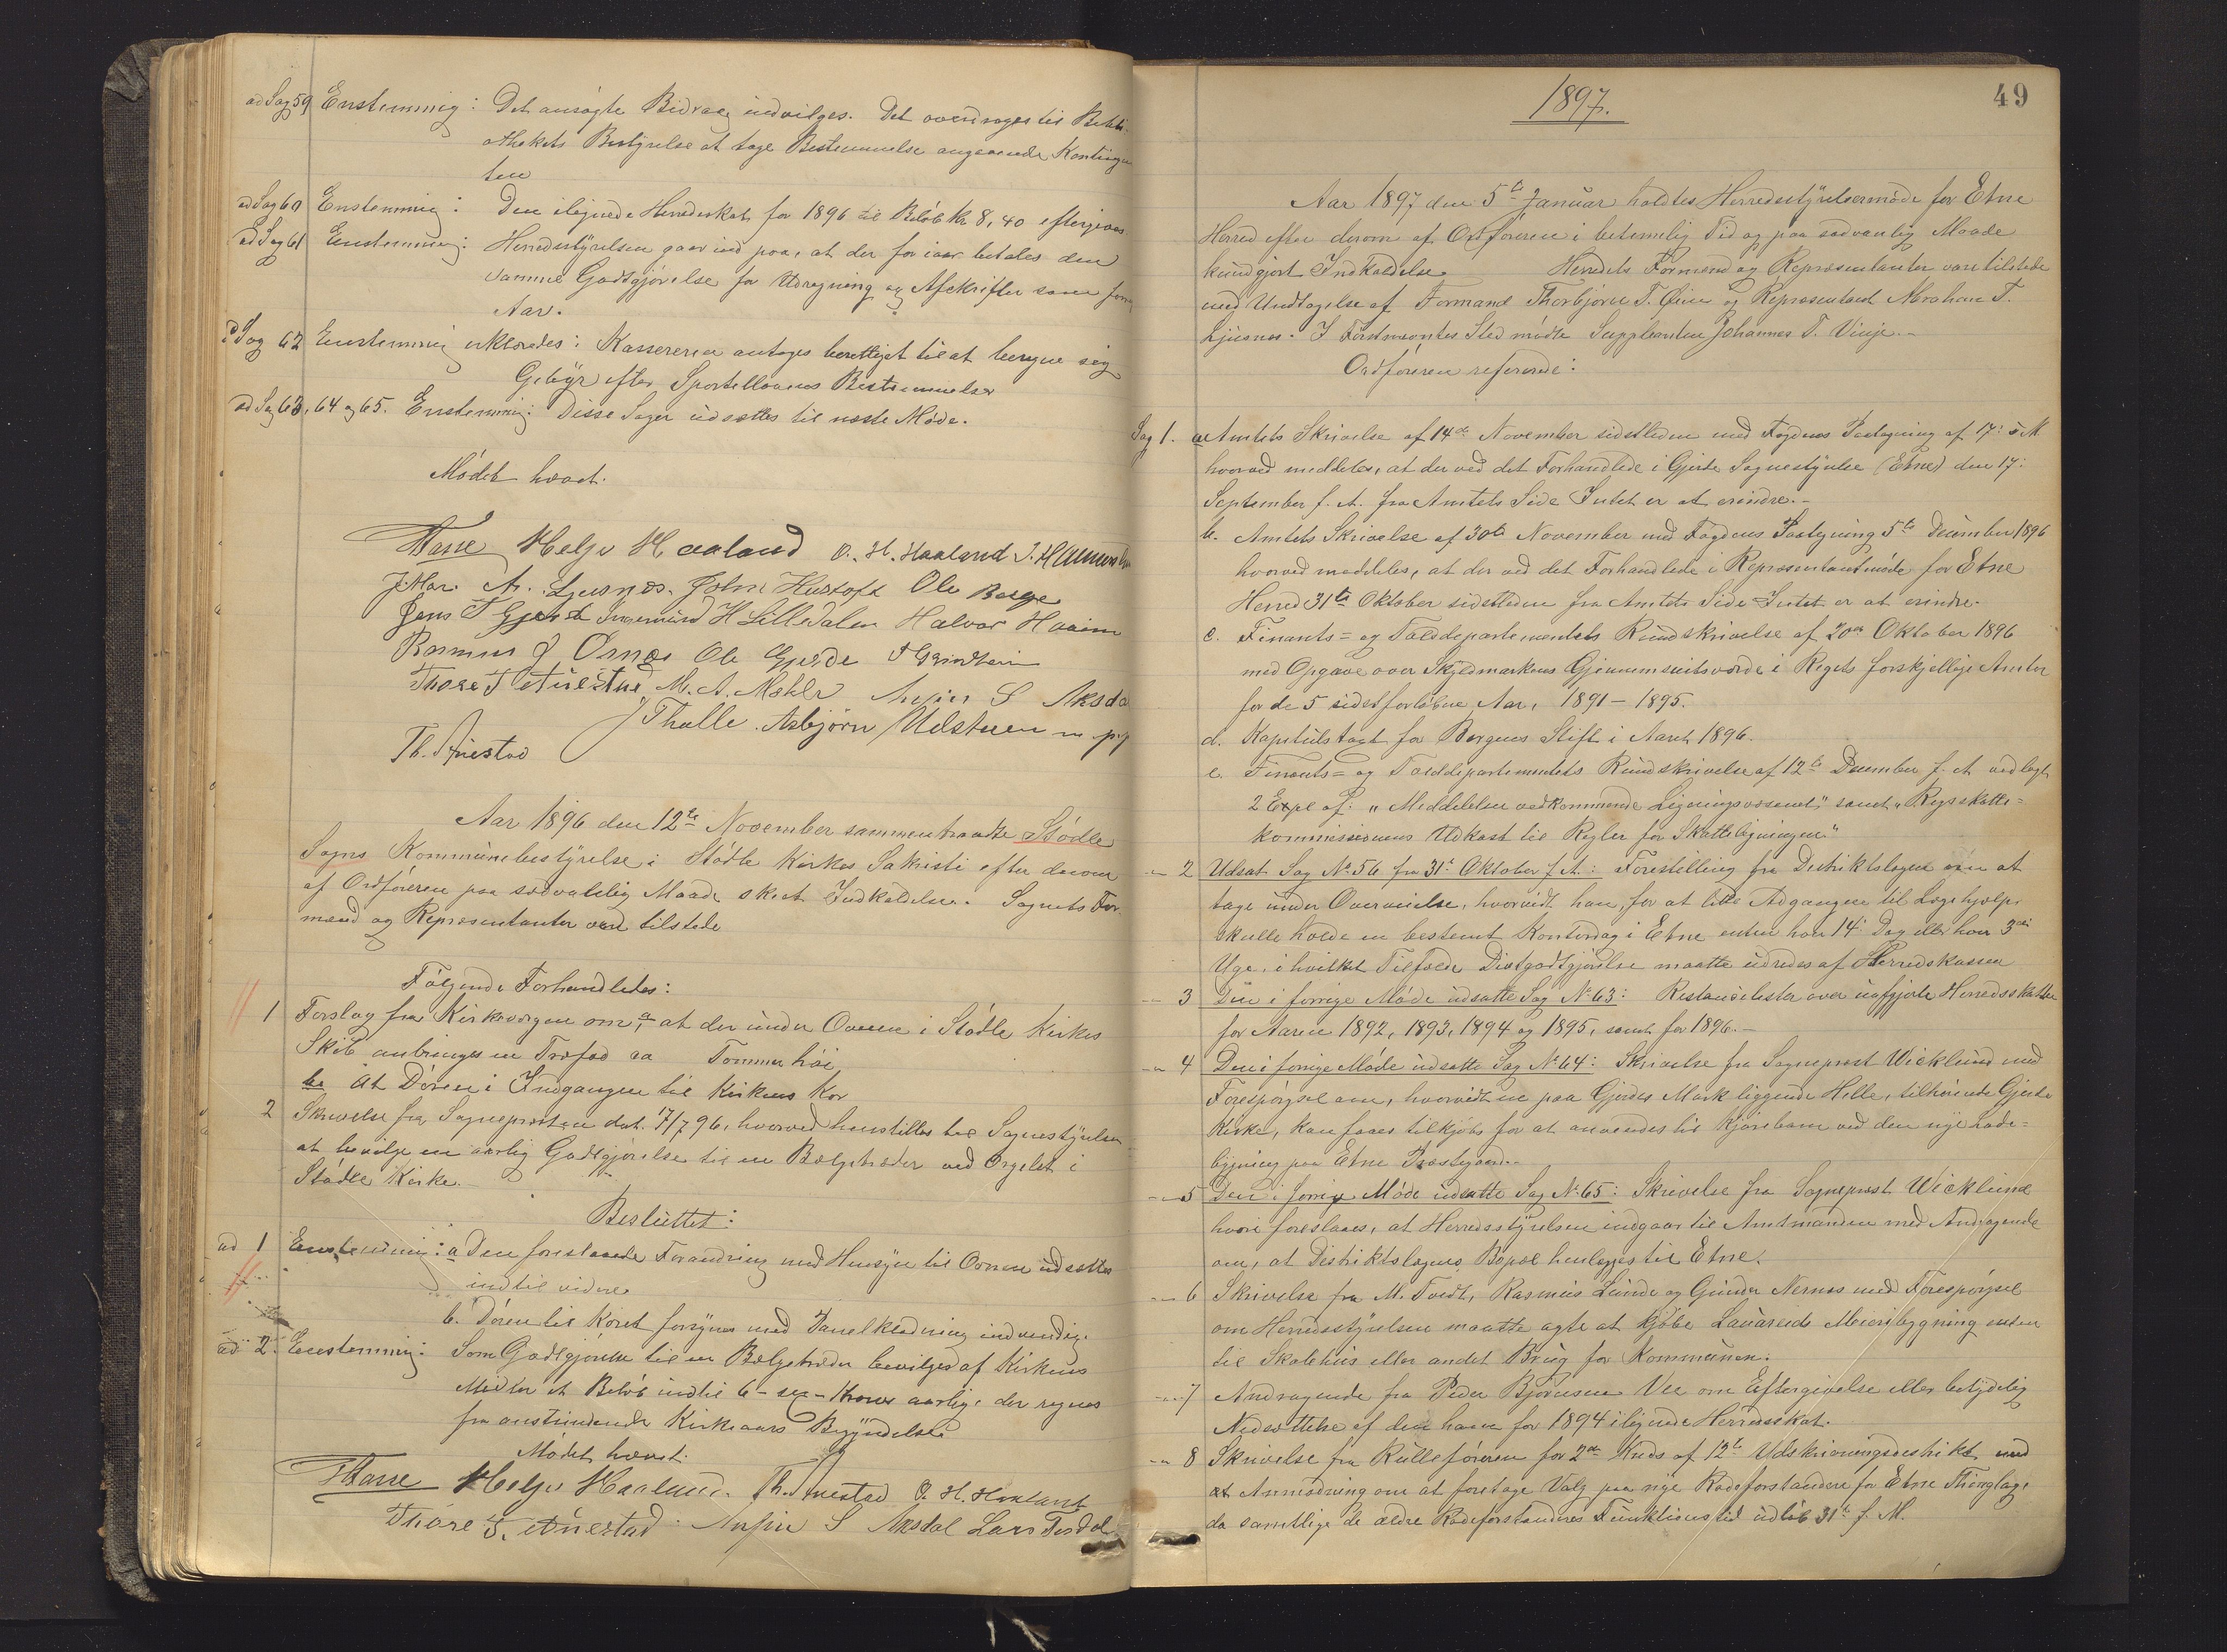 ad Sag 59 Enstemmig: Det ansøgte Bidrag indvilges. Det overdrages til Bibli-
othekets Bestyrelse at tage Bestemmelse angaaende Kontingen
ten
ad Sag 60 Enstemmig: Den ilignede Herredsskat for 1896 til Beløb Kr 8,40 eftergives
ad Sag 61 Enstemmig: Herredsstyrelsen gaar ind paa, at der for iaar betales den
samme Godtgjørelse for Udregning og Afskrifter som forrige
Aar.
ad Sag 62 Enstemmig erklæredes: Kassereren antages berettiget til at beregne sig
Gebyr efter Sportellovens Bestemmelser
ad Sag 63, 64 og 65. Enstemmig: Disse Sager udsættes til næste Møde.
Mødet hævet.
Helje Haaland O. H. Haaland
A. Ljusnes. John Hustoft Ole Berge
Jens T Gjerde Ingemund H Lilledalen Halvor Haaim
Rasmus J Ørnes Ole Gjerde
Thore T Auestad M. A. Mehle Anfin S Aksdal
J Thalle. Asbjørn Udstuen m.p.p.
Th. Auestad
Aar 1896 den 12te November sammentraadte Stødle
Sogns Kommunebestyrelse i Stødle Kirkes Sakristi efter derom
af Ordføreren paa sædvanlig Maade skeet Indkaldelse. Sognets For-
mænd og Repræsentanter vare tilstede
Følgende Forhandledes:
1 Forslag fra Kirkevergen om, a at der under Ovnen i Stødle Kirkes
Skib anbringes en Træfod ca Tommer høi
b. At Døren i Indgangen til Kirkens Kor
2 Skrivelse fra Sognepræsten dat. 17/7 96, hvorved henstilles til Sognestyrelsen
at bevilge en aarlig Godtgjørelse til en Bælgetræder ved Orgelet i
Stødle Kirke.
Besluttet:
ad 1 Enstemmig: a Den foreslaaede Forandring med Hensyn til Ovnen udsættes
indtil videre
b. Døren til Koret forsynes med Panelklædning indvendig.
ad 2. Enstemmig: Som Godtgjørelse til en Bælgetræder bevilges af Kirkens
Midler et Beløb indtil 6 - sex - Kroner aarlig, der regnes
fra anstundende Kirkeaars Begyndelse
Mødet hævet.
Helje Haaland. Th. Auestad O. H. Haaland
Thore T. Auestad. Anfin S Aksdal Lars Tesdal
49
1897.
Aar 1897 den 5te Januar holdtes Herredsstyrelsesmøde for Etne
Herred efter derom af Ordføreren i betimelig Tid og paa sædvanlig Maade
kundgjort Indkaldelse. Herredets Formænd og Repræsentanter vare tilstede
med Undtagelse af Formand Thorbjørn T. Øien og Repræsentant Abraham T.
Ljusnes. I Førstnævntes Sted mødte Suppleanten Johannes T. Vinje.-
Ordføreren refererede:
Sag 1. a Amtets Skrivelse af 14de November sidstleden med Fogdens Paategning af 17. s. M.
hvorved meddeles, at der ved det Forhandlede i Gjerde Sognestyrelse (Etne) den 17.
September f. A. fra Amtets Side Intet er at erindre.-
b. Amtets Skrivelse af 30te November med Fogdens Paategning 5te December 1896
hvorved meddeles, at der ved det Forhandlede i Repræsentantmøde for Etne
Herred 31te Oktober sidstleden fra Amtets Side Intet er at erindre.
c. Finants- og Tolddepartementets Rundskrivelse af 20de Oktober 1896
med Opgave over Skyldmarkens Gjennemsnitsværdi i Rigets forskjellige Amter
for de 5 sidstforløbne Aar, 1891 - 1895.
d. Kapitelstaxt for Bergens Stift i Aaret 1896.
e. Finants- og Tolddepartementets Rundskrivelse af 12te December f. A. vedlagt
2 Expl af: „Meddelelser vedkommende Ligningsvæsenet", samt „Rigsskatte-
kommissionens Udkast til Regler for Skatteligningen"
- 2 Udsat Sag No 56 fra 31te Oktober f. A.: Forestilling fra Distriktslægen om at
tage under Overveielse, hvorvidt han, for at lette Adgangen til Lægehjælp,
skulde holde en bestemt Kontordag i Etne enten hver 14de Dag eller hver 3die
Uge, i hvilket Tilfælde Diætgodtgjørelse maatte udredes af Herredskassen
- 3 Den i forrige Møde udsatte Sag No 63: Restanselister over uafgjorte Herredsskatter
for Aarene 1892, 1893, 1894 og 1895, samt for 1896.-
- 4 Den i forrige Møde udsatte Sag No 64: Skrivelse fra Sognepræst Wicklund med
Forespørgsel om, hvorvidt en paa Gjerdes Mark liggende Helle, tilhørende Gjerde
Kirke, kan faaes tilkjøbs for at anvendes til Kjørebane ved den nye Lade-
bygning paa Etne Præstegaard.-
- 5 Den i forrige Møde udsatte Sag No 65: Skrivelse fra Sognepræst Wicklund
hvori foreslaaes, at Herredsstyrelsen indgaar til Amtmanden med Andragende
om, at Distriktslægens Bopæl henlægges til Etne.
- 6 Skrivelse fra M. Tvedt, Rasmus Lunde og Gunder Nernes med Forespørgsel
om Herredsstyrelsen maatte agte at kjøbe Lauareids Meieribygning enten
til Skolehus eller andet Brug for Kommunen.
- 7 Andragende fra Peder Bjørnsen Vee om Eftergivelse eller betydelig
Nedsættelse af den ham for 1894 ilignede Herredsskat.
- 8 Skrivelse fra Rulleføreren for 2det Kreds af 12te Udskrivningsdistrikt med
et Anmodning om at foretage Valg paa nye Rodeforstandere for Etne Thinglag,
da samtlige de ældre Rodeforstanderes Funktionstid udløb 31te f. M.